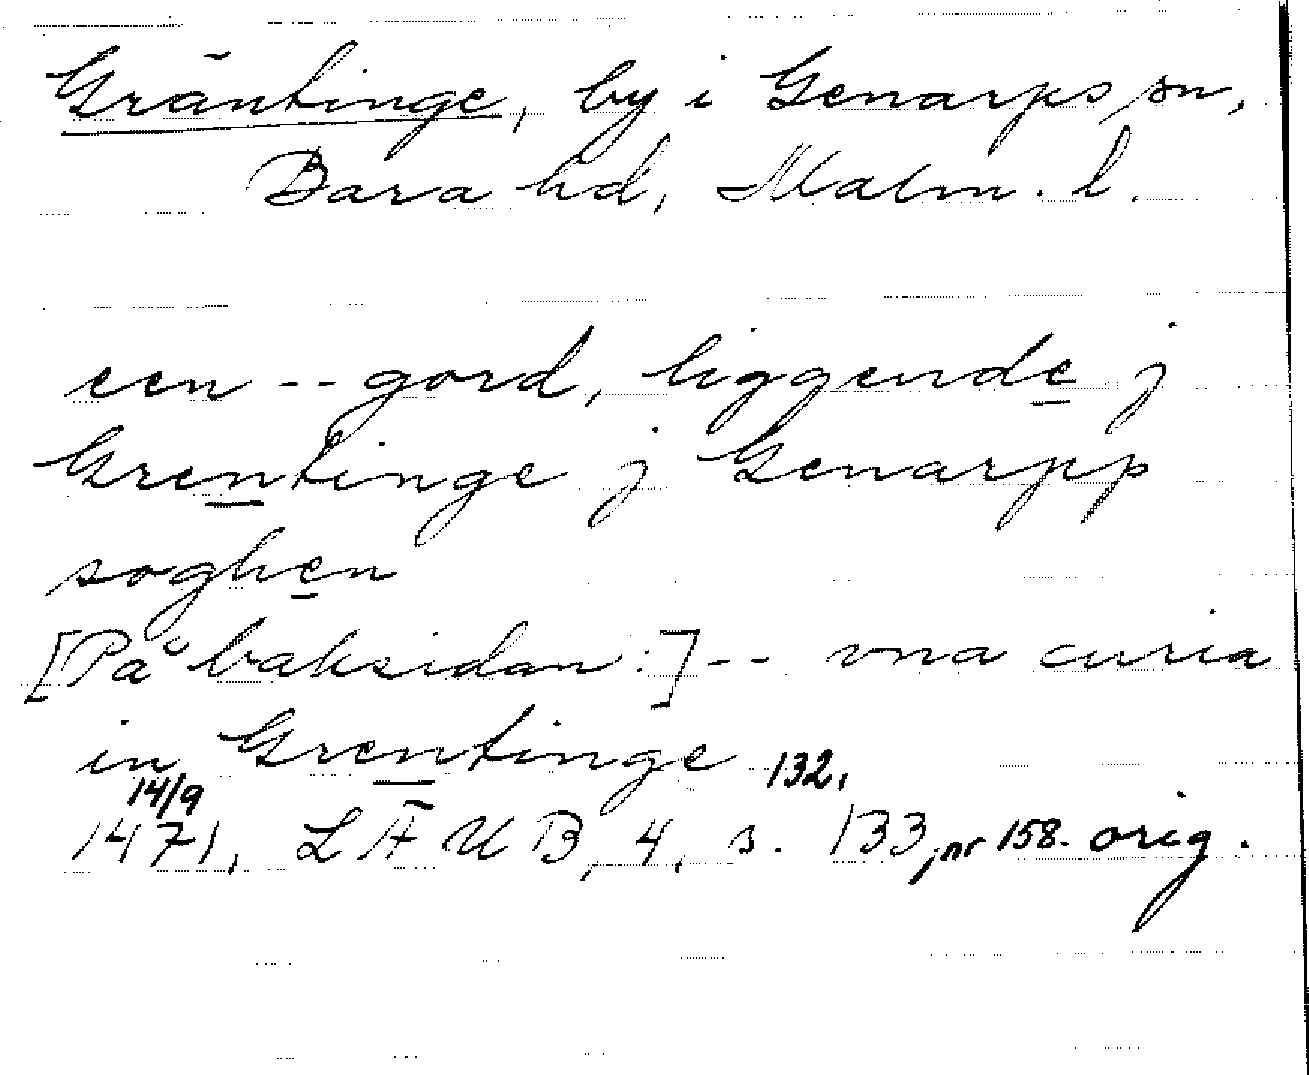 Gräntinge, by i Genarps sn,
Bara hd, Malm. l.
een -- gord, liggende j
Grentinge j Genarpp
soghen
[På baksidan:] -- vna curia
in Grentinge 132,
14/9
1471, LÄUB, 4, s. 133, nr 158. orig.